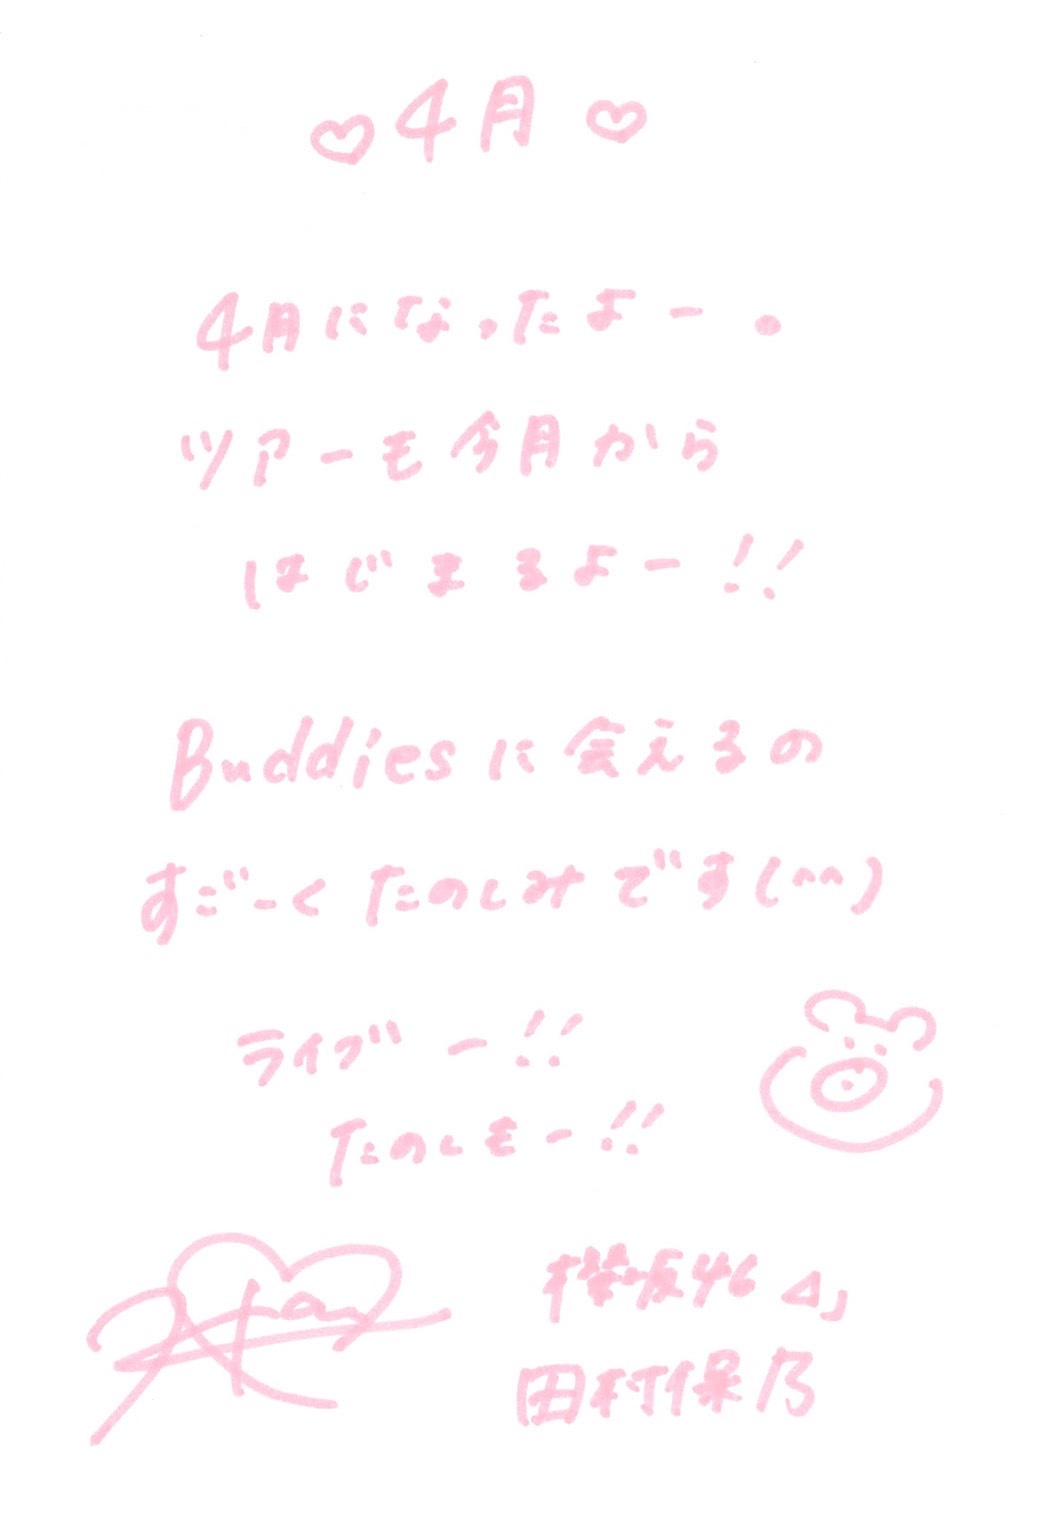 ♡4月♡
4月になったよー.
ツアーも今月から
はじまるよー!!
Buddiesに会えるの
すごーくたのしみです(^^)
ライブー!!
たのしもー!!
櫻坂46
田村保乃